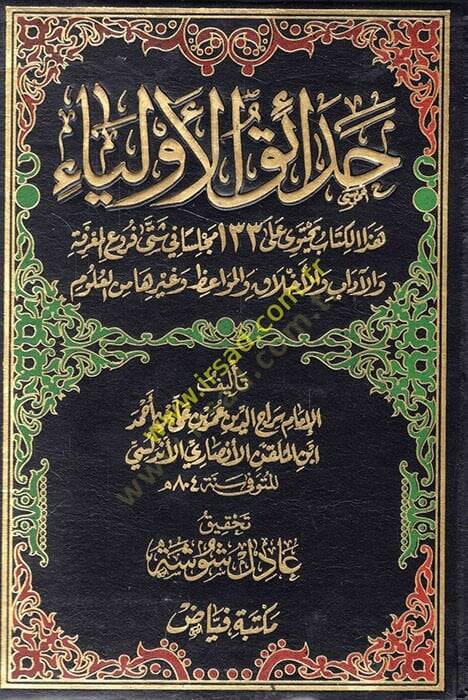 حدائق الأولياء
هذا الكتاب يحتوى على ١٣٣ مجلسا في شتى فروع المعرفة
والآداب والأخلاق والمواعظ وغيرها من العلوم
تأليف
الإمام سراج الدين عمر بن علي بن أحمد
ابن الملقن الأنصاري الأندلسي
المتوفى سنة ٨٠٤هـ
تحقيق
عادل شوشة
مكتبة فياض
www.irsad.com.tr